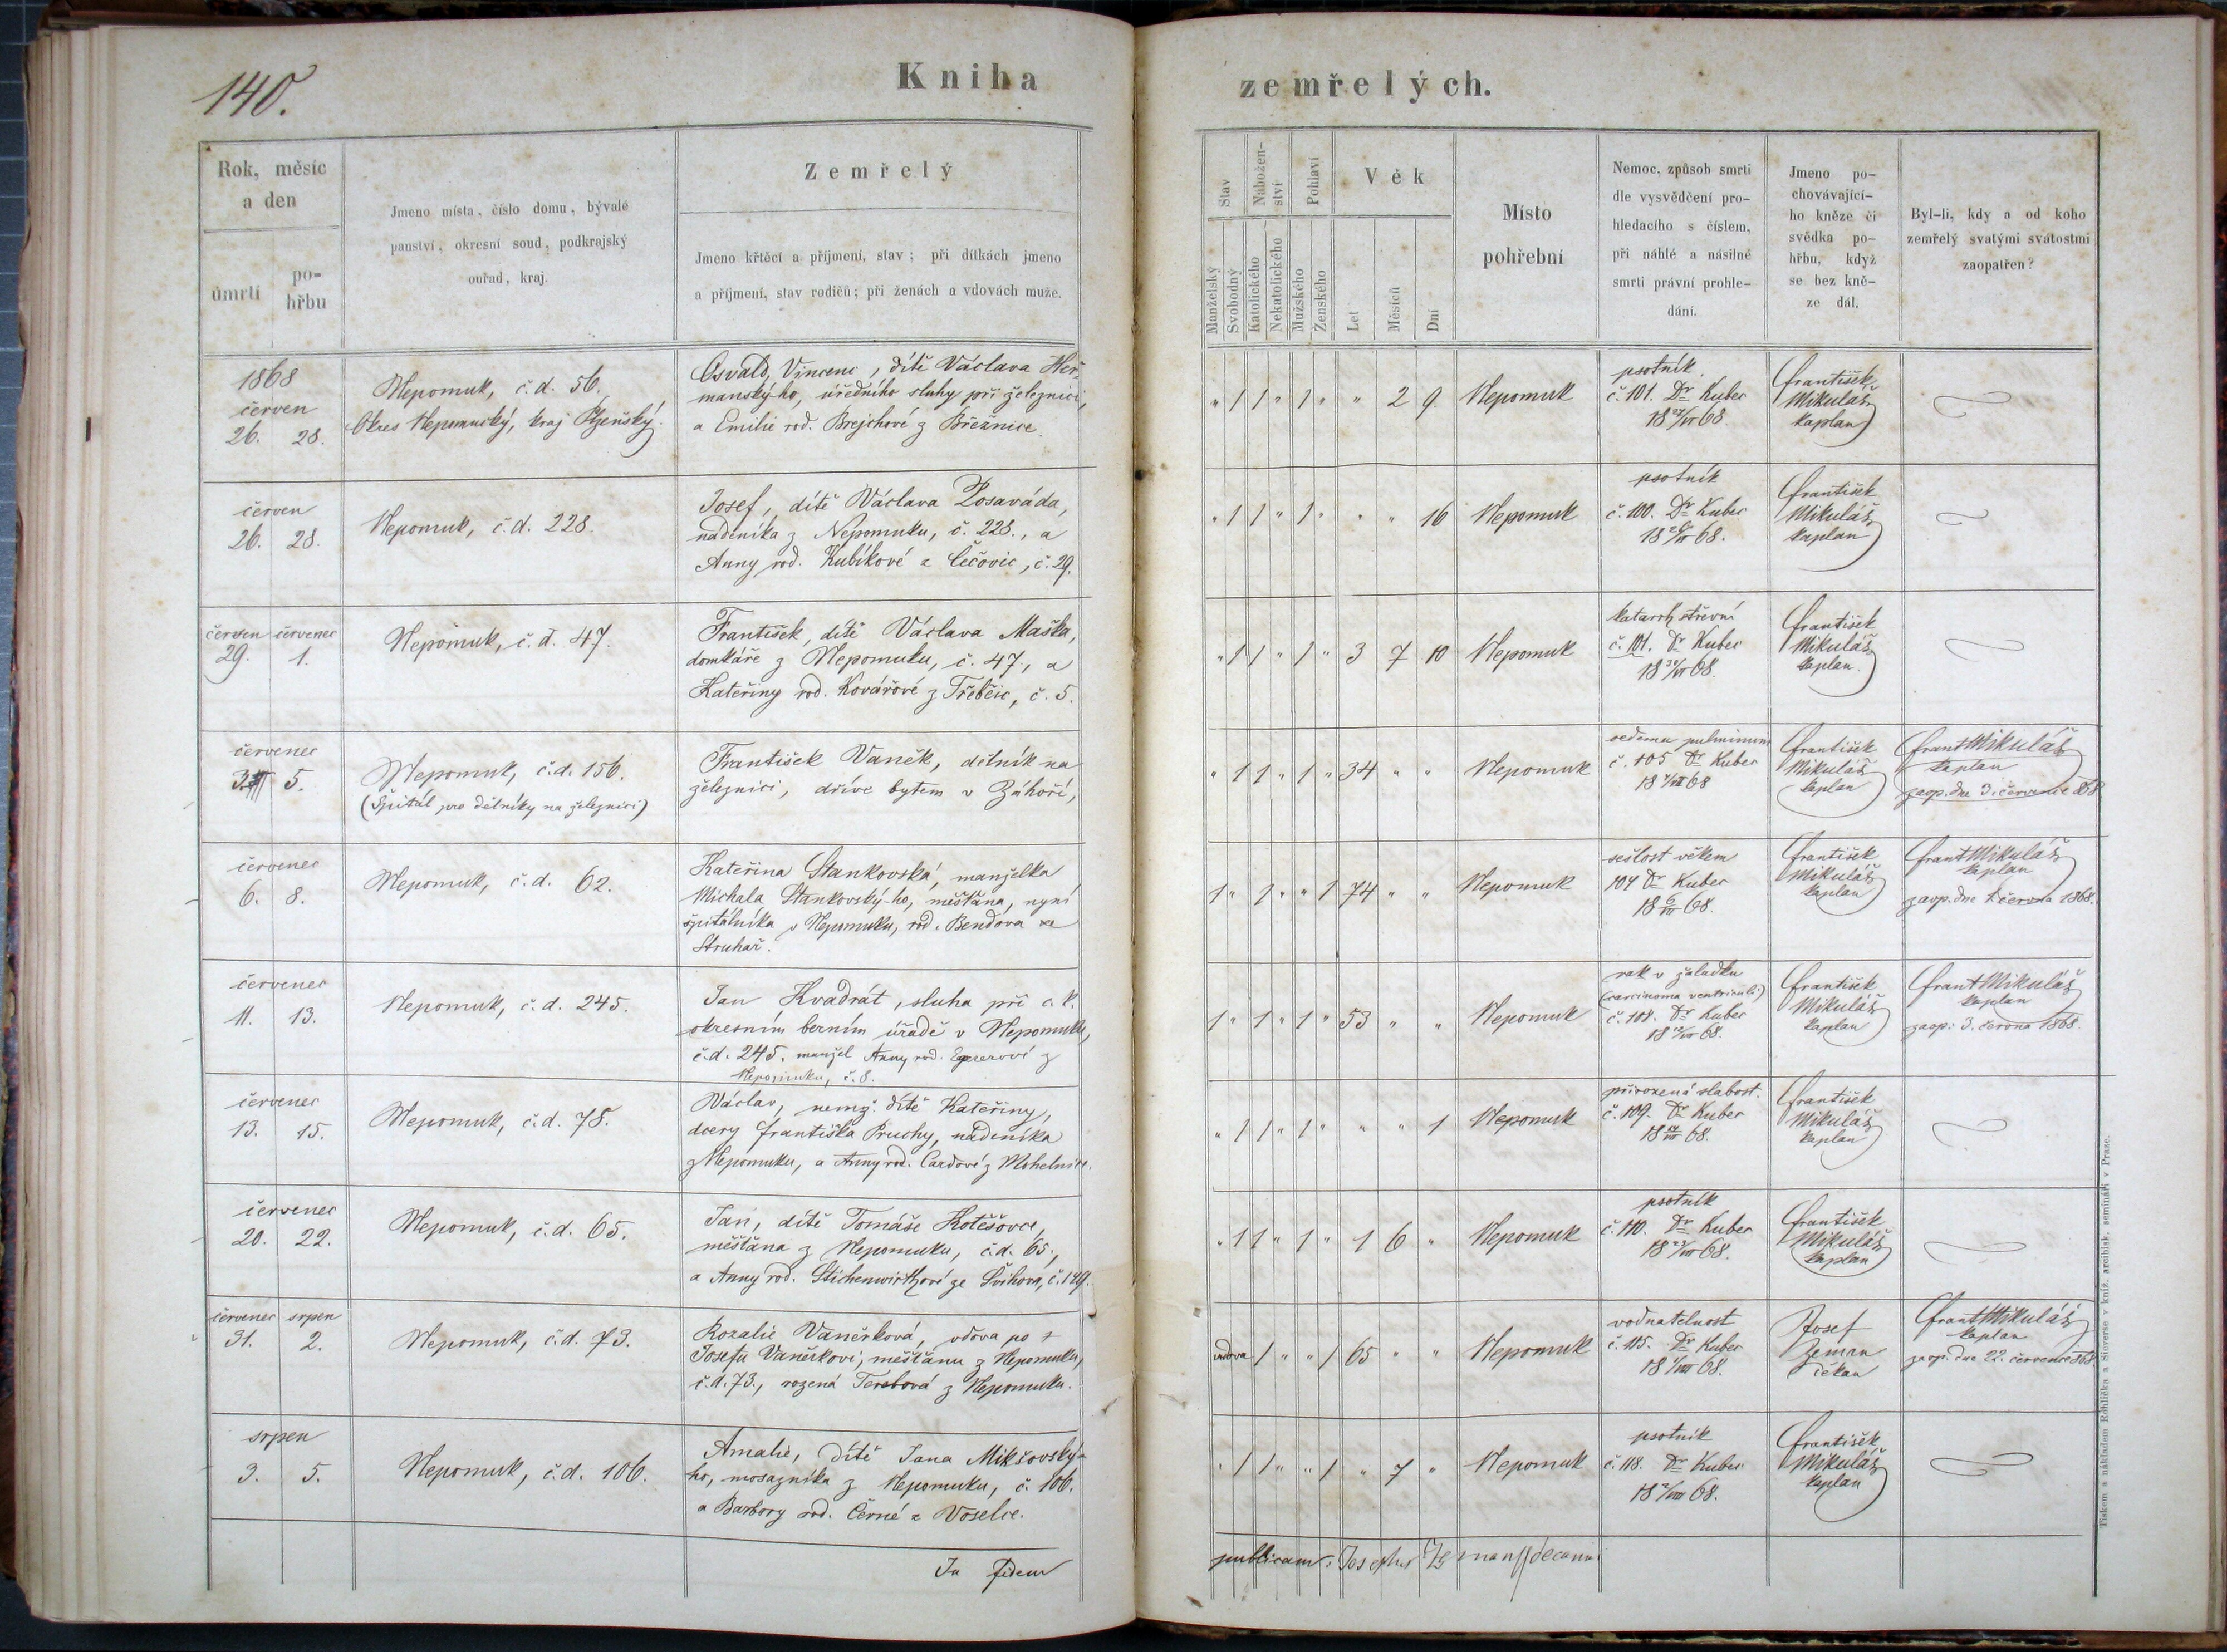 140.
Kniha zemřelých.
Rok, měsíc
a den
úmrtí
po-
hřbu
Jmeno místa, číslo domu, bývalé
panství, okresní soud, podkrajský
ouřad, kraj.
Zemřelý
Jmeno křtěcí a příjmení, stav; při dítkách jmeno
a příjmení, stav rodičů; při ženách a vdovách muže.
Stav
Nábožen-
ství
Pohlaví
Věk
Manželský
Svobodný
Katolického
Nekatolického
Mužského
Ženského
Let
Měsíců
Dní
Místo
pohřební
Nemoc, způsob smrti
dle vysvědčení pro-
hledacího s číslem,
při náhlé a násilné
smrti právní prohle-
dání.
Jmeno po-
chovávající-
ho kněze či
svědka po-
hřbu, když
se bez kně-
ze dál.
Byl-li, kdy a od koho
zemřelý svatými svátostmi
zaopatřen?
1868
červen
26. 28.
Nepomuk, č.d. 56.
Okres Nepomucký, kraj Plzeňský.
Osvald, Vincenc, dítě Václava Heř
manský-ho, úředního sluhy při železnici,
a Emilie rod. Brejchové z Březnice.
" 1 1 " 1 " " 2 9.
Nepomuk
psotník.
č. 101. Dr Kubec
František
Mikuláš
kaplan
červen
26. 28.
Nepomuk, č.d. 228.
Josef, dítě Václava Posaváda,
nádeníka z Nepomuku, č. 228., a
Anny rod. Kubíkové z Čečovic, č. 29.
" 1 1 " 1 " " " 16
Nepomuk
psotník
č. 100. Dr Kubec
František
Mikuláš
kaplan
červen červenec
29. 1.
Nepomuk, č.d. 47.
František, dítě Václava Maška,
domkáře z Nepomuku, č. 47., a
Kateřiny rod. Kovářové z Třebčic, č. 5.
" 1 1 " 1 " 3 7 10
Nepomuk
katarrh střevní
č. 101. Dr Kubec
František
Mikuláš
kaplan.
červenec
3. 5.
Nepomuk, č.d. 156.
(Špitál pro dělníky na železnici)
František Vaněk, dělník na
železnici, dříve bytem v Záhoří,
" 1 1 " 1 " 34 " "
Nepomuk
oedema pulmonum
č. 105 Dr Kubec
František
Mikuláš
kaplan
Frant Mikuláš
kaplan
zaop. dne 3. července 868
červenec
6. 8.
Nepomuk, č.d. 62.
Kateřina Stankovská, manželka
Michala Stankovský-ho, měšťana, nyní
špitálníka v Nepomuku, rod. Bendova ze
Struhař.
1 " 1 " " 1 74 " "
Nepomuk
sešlost věkem
104 Dr Kubec
František
Mikuláš
kaplan
Frant Mikuláš
kaplan
zaop. dne 1 června 1868.
červenec
11. 13.
Nepomuk, č.d. 245.
Jan Kvadrát, sluha při c. k.
okresním berním úřadě v Nepomuku,
č.d. 245, manžel Anny rod. z
Nepomuku, č. 8.
1 " 1 " 1 " 53 " "
Nepomuk
rak v žaludku
(carcinoma ventriculi)
č. 108. Dr Kubec
František
Mikuláš
kaplan
Frant Mikuláš
kaplan
zaop. 3. června 1868.
červenec
13. 15.
Nepomuk, č.d. 78.
Václav, nemž. dítě Kateřiny,
dcery Františka Pruchy, nádeníka
z Nepomuku, a Anny rod. z Mohelnice.
" 1 1 " 1 " " " 1
Nepomuk
přirozená slabost.
č. 109. Dr Kubec
František
Mikuláš
kaplan
červenec
20. 22.
Nepomuk, č.d. 65.
Jan, dítě Tomáše Kotěšovce,
měšťana z Nepomuku, č.d. 65,
a Anny rod. Stichenwirthové ze Švihova, č. 149.
" 1 1 " 1 " 1 6 "
Nepomuk
psotník
č. 110. Dr Kubec
František
Mikuláš
kaplan
červenec srpen
31. 2.
Nepomuk, č.d. 73.
Rozalie Vaněrková, vdova po †
Josefu Vaněrkovi, měšťanu z Nepomuku,
č.d. 73., rozená Terebová z Nepomuku.
vdova 1 " " 1 65 " "
Nepomuk
vodnatelnost
č. 115. Dr Kubec
Josef
Zeman
děkan
Frant Mikuláš
kaplan
zaop. dne 22. července 868
srpen
3. 5.
Nepomuk, č.d. 106.
Amalie, dítě Jana Mikšovský-
ho, mosazníka z Nepomuku, č. 106.
a Barbory rod. Černé z Voselce.
" 1 1 " " 1 " 7 "
Nepomuk
psotník
č. 118. Dr Kubec
František
Mikuláš
kaplan
In fidem
publicam: Josephus Zeman decanus
Tiskem a nákladem Rohlíčka a Sieverse v kníž. arcibisk. semináři v Praze.